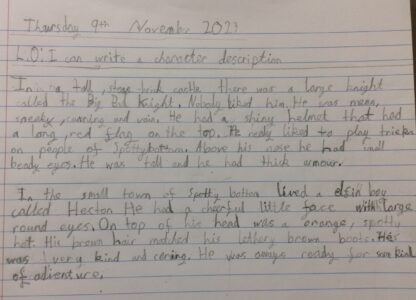 Thursday 9th November 2023
L.O: I can write a character description
In a tall, stone brick castle there was a large knight
called the Big Bad Knight. Nobody liked him. He was mean,
sneaky, cunning and vain. He had a shiny helmet that had
a long, red flag on the top. He really liked to play tricks
on people of Spottybottom. Above his nose he had small
beady eyes. He was tall and he had thick armour.
In the small town of Spotty botton lived a elfin boy
called Hector. He had a cheerful little face with large
round eyes. On top of his head was a orange, spotty
hat. His brown hair matched his lethery brown boots. He
was very kind and caring. He was always ready for some kind
of adventure.